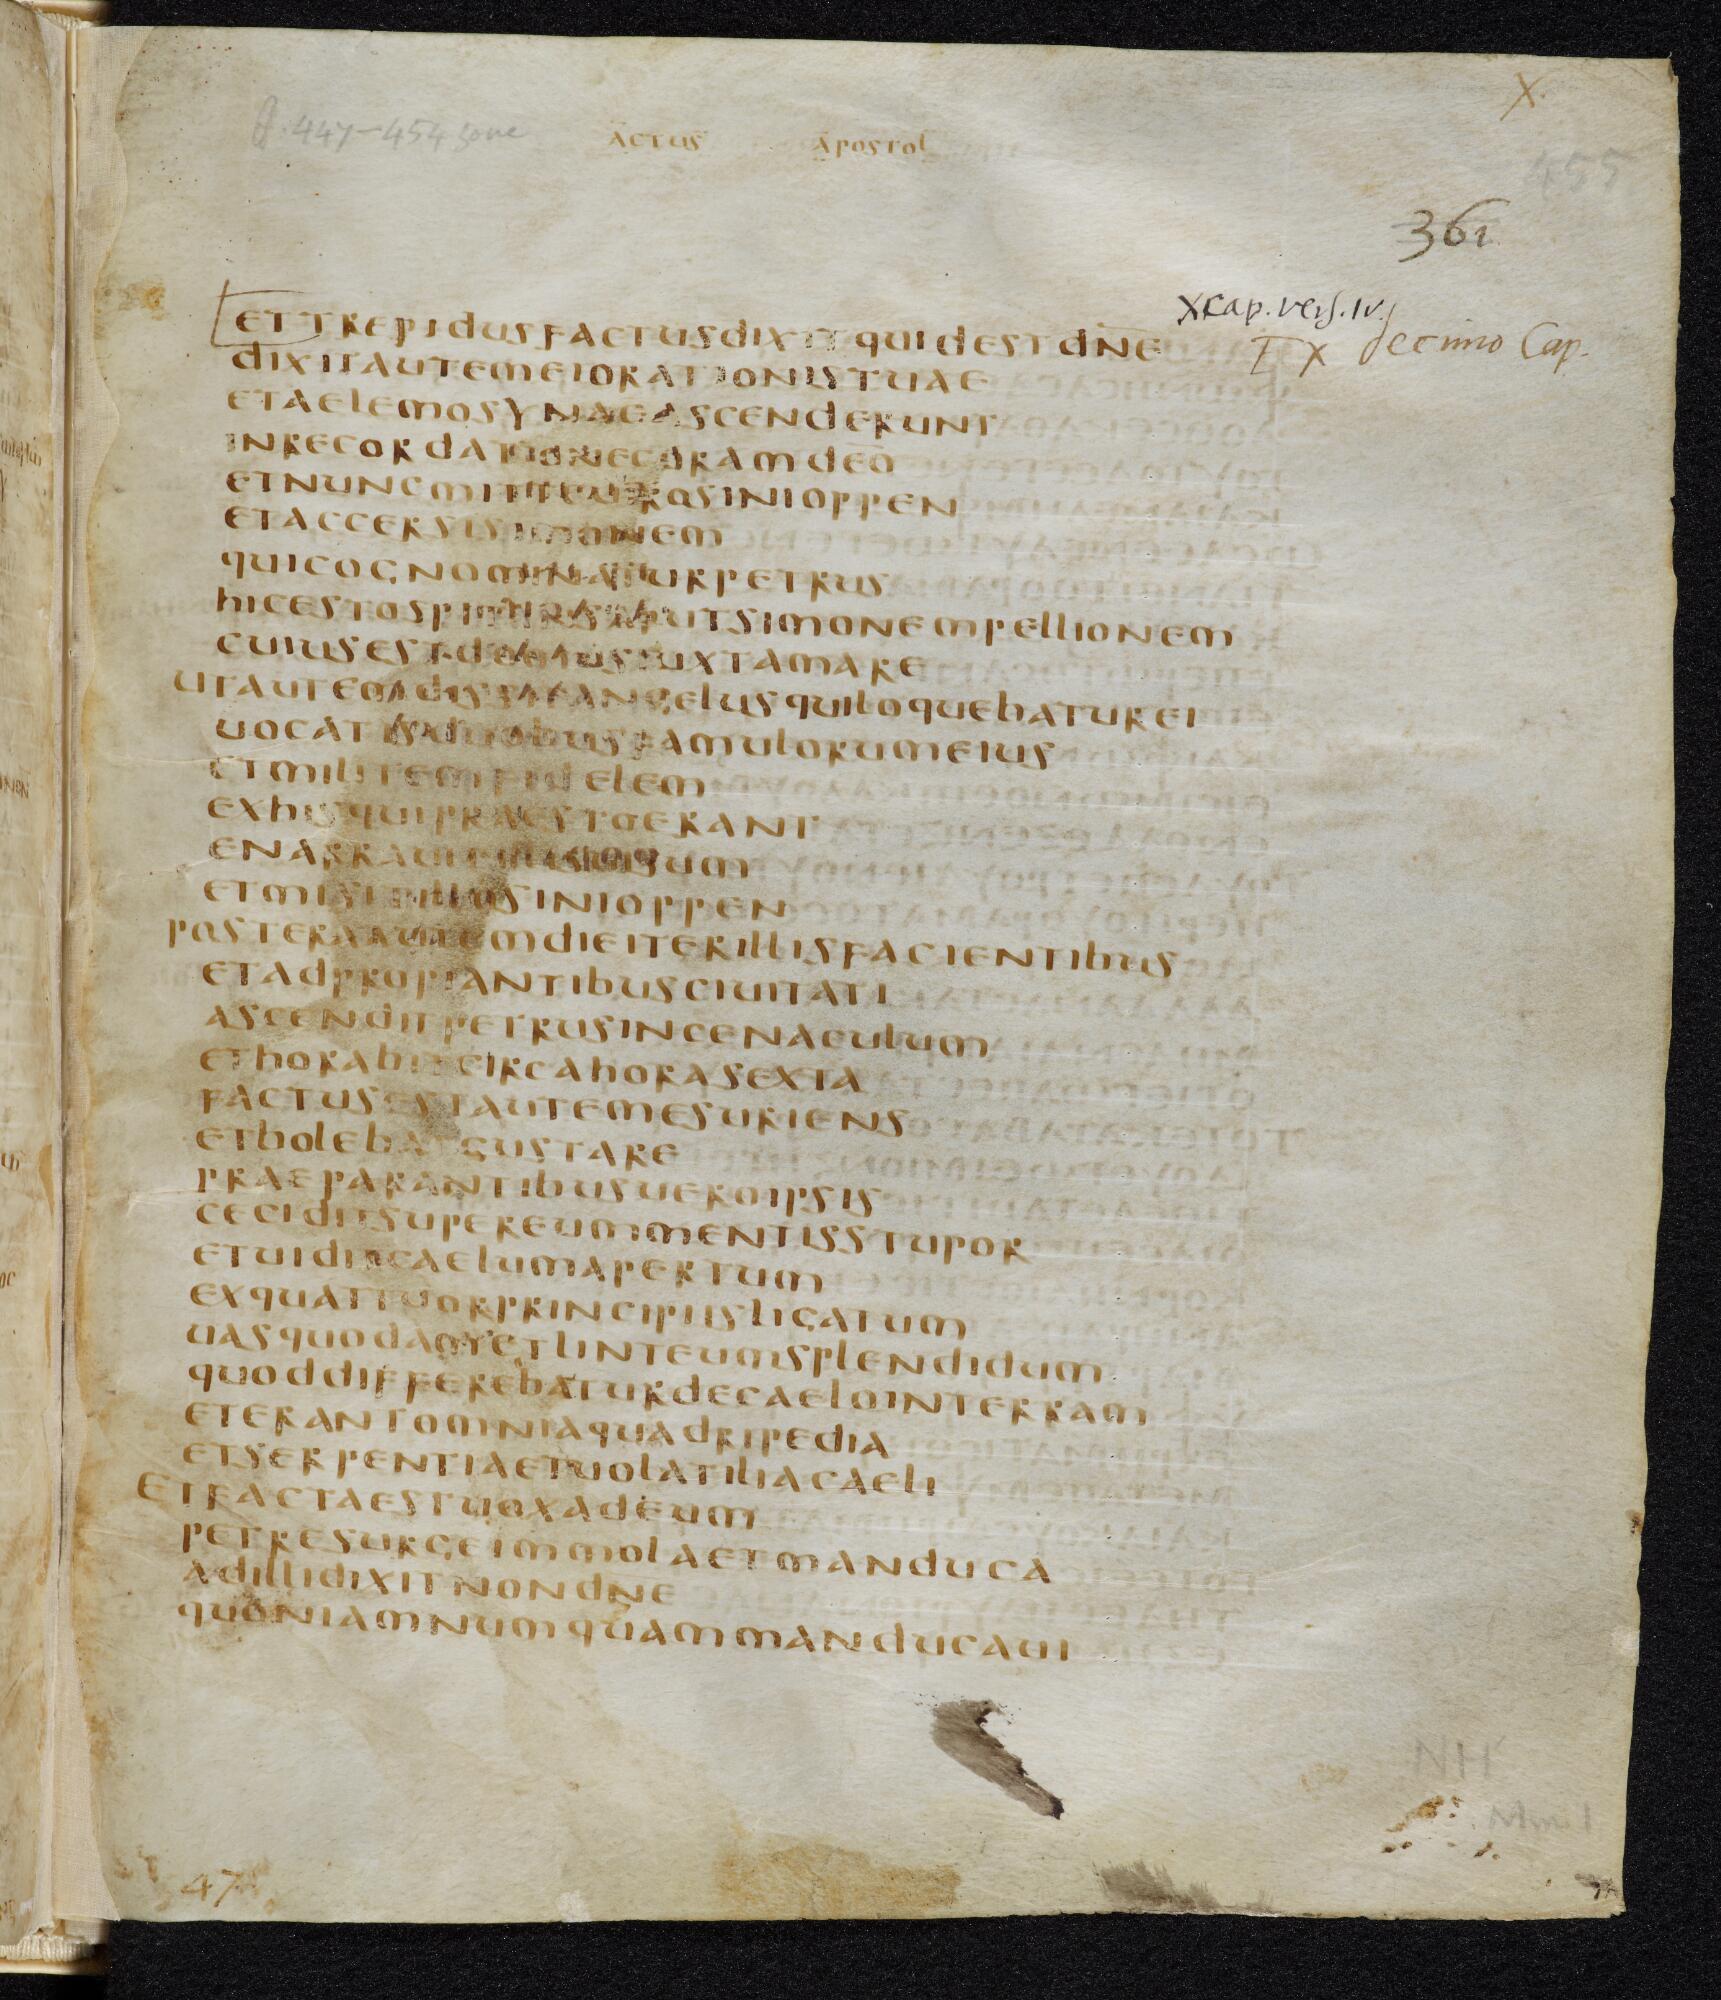 X
ff. 447-454 gone
ACTUS APOSTOL
455
361
X Cap. vers. IV.
EX decimo Cap.
ETTREPIDUSFACTUSDIXITQUIDESTDN̄E
DIXITAUTEMEIORATIONISTUAE
ETAELEMOSYNAEASCENDERUNT
INRECORDATIONECORAMDEO
ETNUNCMITTEUIROSINIOPPEN
ETACCERSISIMONEM
QUICOGNOMINATURPETRUS
HICESTOSPITANSAPUTSIMONEMPELLIONEM
CUIUSESTDOMUSIUXTAMARE
UTAUTEMDISSITANGELUSQUILOQUEBATUREI
UOCATISDUOBUSFAMULORUMEIUS
ETMILITEMFIDELEM
EXHISQUIPRAESTOERANT
ENARRAUITILLISUISUM
ETMISITILLOSINIOPPEN
POSTERAAUTEMDIEITERILLISFACIENTIBUS
ETADPROPIANTIBUSCIUITATI
ASCENDITPETRUSINCENACULUM
ETHORABITCIRCAHORASEXTA
FACTUSESTAUTEMESURIENS
ETBOLEBATGUSTARE
PRAEPARANTIBUSUEROIPSIS
CECIDITSUPEREUMMENTISSTUPOR
ETUIDITCAELUMAPERTUM
EXQUATTUORPRINCIPIISLIGATUM
UASQUODAMETLINTEUMSPLENDIDUM
QUODDIFFEREBATURDECAELOINTERRAM
ETERANTOMNIAQUADRIPEDIA
ETSERPENTIAETUOLATILIACAELI
ETFACTAESTUOXADEUM
PETRESURGEIMMOLAETMANDUCA
ADILLIDIXITNONDNE
QUONIAMNUMQUAMMANDUCAUI
NH
Mm 1
47